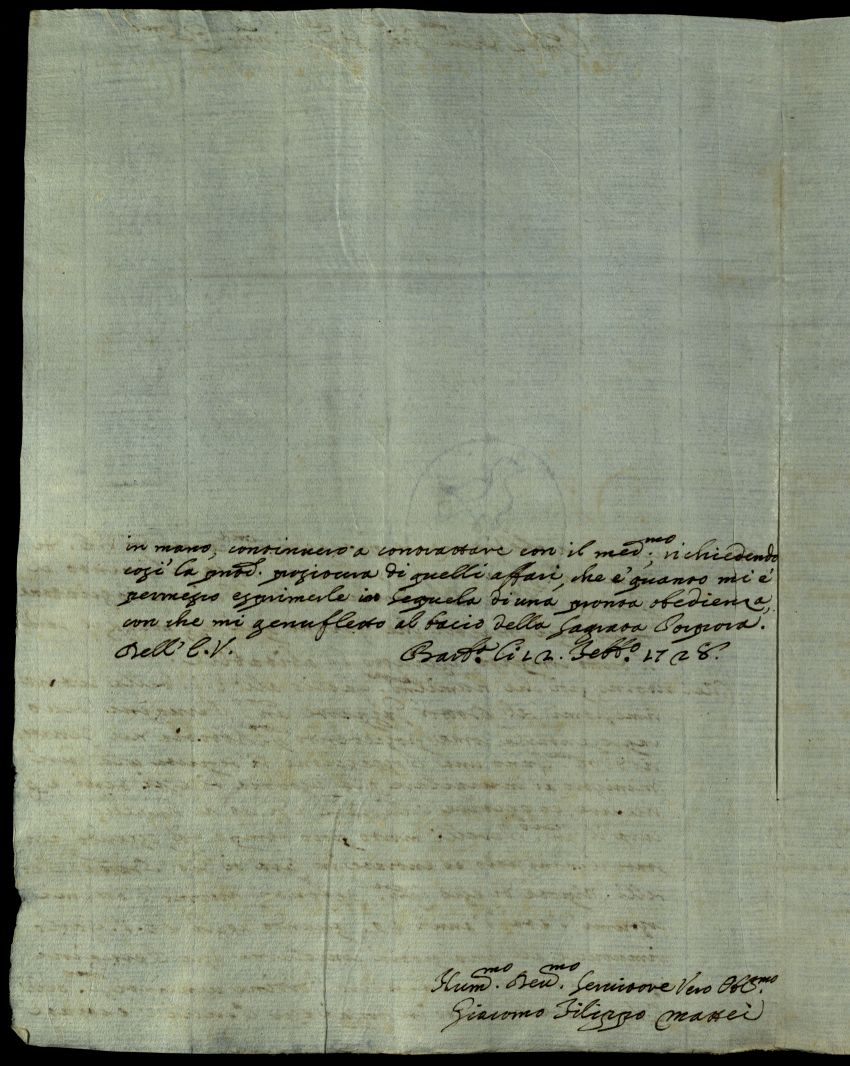 in mano, continuero a contrattare con il med.mo richiedendo
cosi la pnte. positura di quelli affari, che è quanto mi è
permesso esprimerle in sequela di una pronta obedienza,
con che mi genufletto al bacio della Sagrata Porpora.
Dell' E.V. li 12. Febb.o 1728.
Hum.mo Deu.mo Seruitore Vero Obl.mo
Giacomo Filippo Mattei